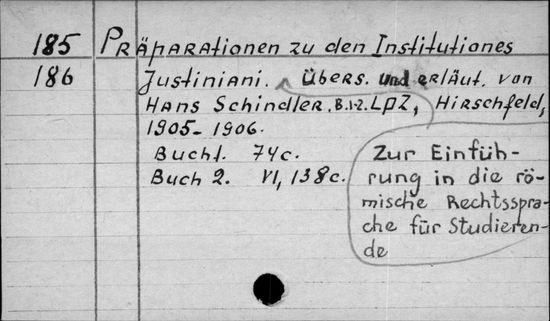 185 Präparationen zu den Institutiones
186 Justiniani. Übers. und erläut. von
Hans Schindler. B.1-2. Lpz, Hirschfeld,
1905-1906.
Buch 1. 74 c.
Buch 2. VI, 138 c.
Zur Einfüh-
rung in die rö-
mische Rechtsspra-
che für Studieren-
de